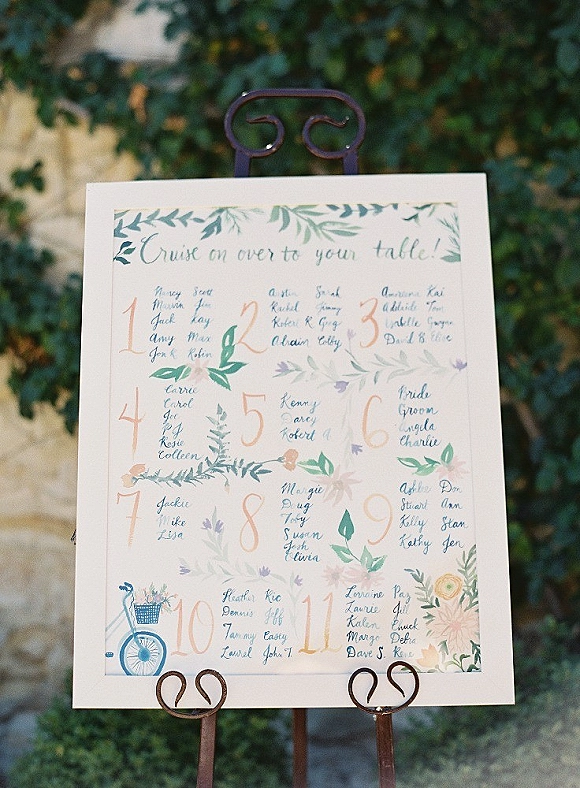 Cruise on over to your table!
1
Nancy Scott
Marvin Jen
Jack Kay
Amy Max
Jon K Robin
2
Austin Sarah
Rachel Jimmy
Robert R. Greg
Abram Colby
3
Kai
Adelaide Tom
David B Elise
4
Carrie
Carol
Joe
PJ
Rosie
Colleen
5
Kenny
Darcy
Robert
6
Bride
Groom
Angila
Charlie
7
Jackie
Mike
Lisa
8
Margie
Doug
Toby
Susan
Josh
Olivia
9
Ashlee Don
Stuart Ann
Kelly Stan
Kathy Jen
10
Heather Ric
Dennis Jeff
Tammy Casey
Laurel John T.
11
Lorraine Paz
Laurie
Kalen Chuck
Margo Debra
Dave S. Rene